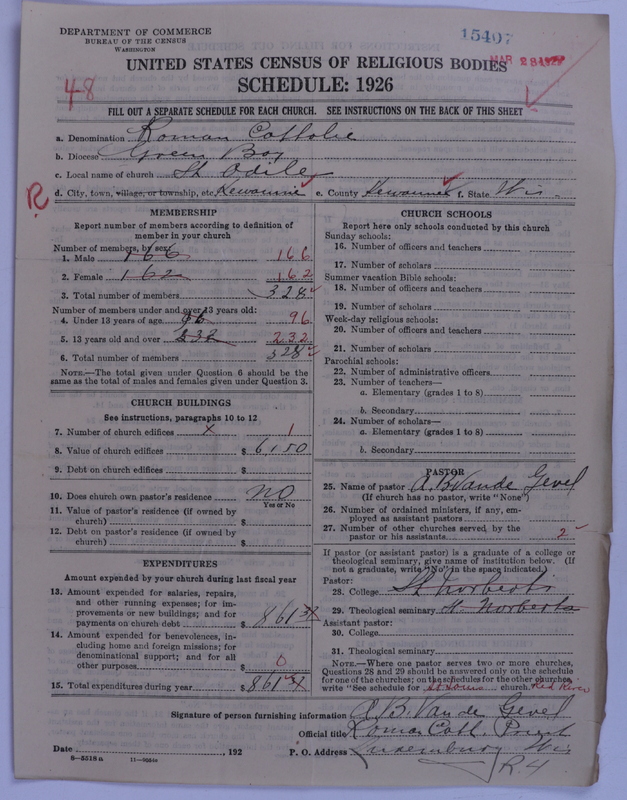 DEPARTMENT OF COMMERCE
BUREAU OF THE CENSUS
WASHINGTON
15407
MAR 23 1927
UNITED STATES CENSUS OF RELIGIOUS BODIES
SCHEDULE: 1926
48
FILL OUT A SEPARATE SCHEDULE FOR EACH CHURCH. SEE INSTRUCTIONS ON THE BACK OF THIS SHEET
a. Denomination Roman Catholic
b. Diocese Green Bay
c. Local name of church St Odiley
R
d. City, town, village, or township, etc. Kewaunee e. County Kewaunee f. State Wis
MEMBERSHIP
Report number of members according to definition of
member in your church
Number of members, by sex:
1. Male 166 166
2. Female 162 162
3. Total number of members 328
Number of members under and over 13 years old:
4. Under 13 years of age 96 96
5. 13 years old and over 232 232
6. Total number of members 328
NOTE.—The total given under Question 6 should be
same as the total of males and females given under Question 3.
CHURCH BUILDINGS
See instructions, paragraphs 10 to 12
7. Number of church edifices x 1
8. Value of church edifices $ 6150
9. Debt on church edifices $
10. Does church own pastor's residence no
Yes or No
11. Value of pastor's residence (if owned by
church) $
12. Debt on pastor's residence (if owned by
church) $
EXPENDITURES
Amount expended by your church during last fiscal year
13. Amount expended for salaries, repairs,
and other running expenses; for im-
provements or new buildings; and for
payments on church debt $ 861
14. Amount expended for benevolences, in-
cluding home and foreign missions; for
denominational support; and for all
other purposes $ 0
15. Total expenditures during year $ 861
CHURCH SCHOOLS
Report here only schools conducted by this church
Sunday schools:
16. Number of officers and teachers
17. Number of scholars
Summer vacation Bible schools:
18. Number of officers and teachers
19. Number of scholars
Week-day religious schools:
20. Number of officers and teachers
21. Number of scholars
Parochial schools:
22. Number of administrative officers
23. Number of teachers—
a. Elementary (grades 1 to 8)
b. Secondary
24. Number of scholars—
a. Elementary (grades 1 to 8)
b. Secondary
PASTOR
25. Name of pastor A. B Vande Gevel
(If church has no pastor, write "None")
26. Number of ordained ministers, if any, em-
ployed as assistant pastors
27. Number of other churches served by the
pastor or his assistants 2
If pastor (or assistant pastor) is a graduate of a college or
theological seminary, give name of institution below. (If
not a graduate, write "No" in the space indicated.)
Pastor:
28. College St Norberts
29. Theological seminary St. Norberts
Assistant pastor:
30. College
31. Theological seminary
NOTE.—Where one pastor serves two or more churches,
Questions 28 and 29 should be answered only on the schedule
for one of the churches; on the schedules for the other churches
write "See schedule for St Louis church. Red River
Signature of person furnishing information A. B. Vande Gevel
Official title Roman Cath. Priest
Date , 192 P. O. Address Luxemburg Wis
8—5518 a
R. 4